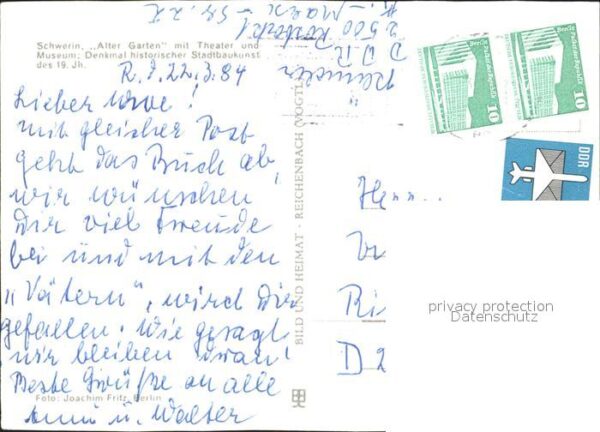 Schwerin, „Alter Garten" mit Theater und
Museum; Denkmal historischer Stadtbaukunst
des 19. Jh.
22.3.84
Lieber Uwe!
mit gleicher Post
geht das Buch ab,
wir wünschen
Dir viel Freude
bei und mit den
„Vätern", wird Dir
gefallen. Wie gesagt
wir bleiben dran!
Beste Grüße an alle
u. Walter
Foto: Joachim Fritz, Berlin
BILD UND HEIMAT · REICHENBACH (VOGTL
DDR
2500 Rostock
10
10
DDR
Herrn
D 2
privacy protection
Datenschutz